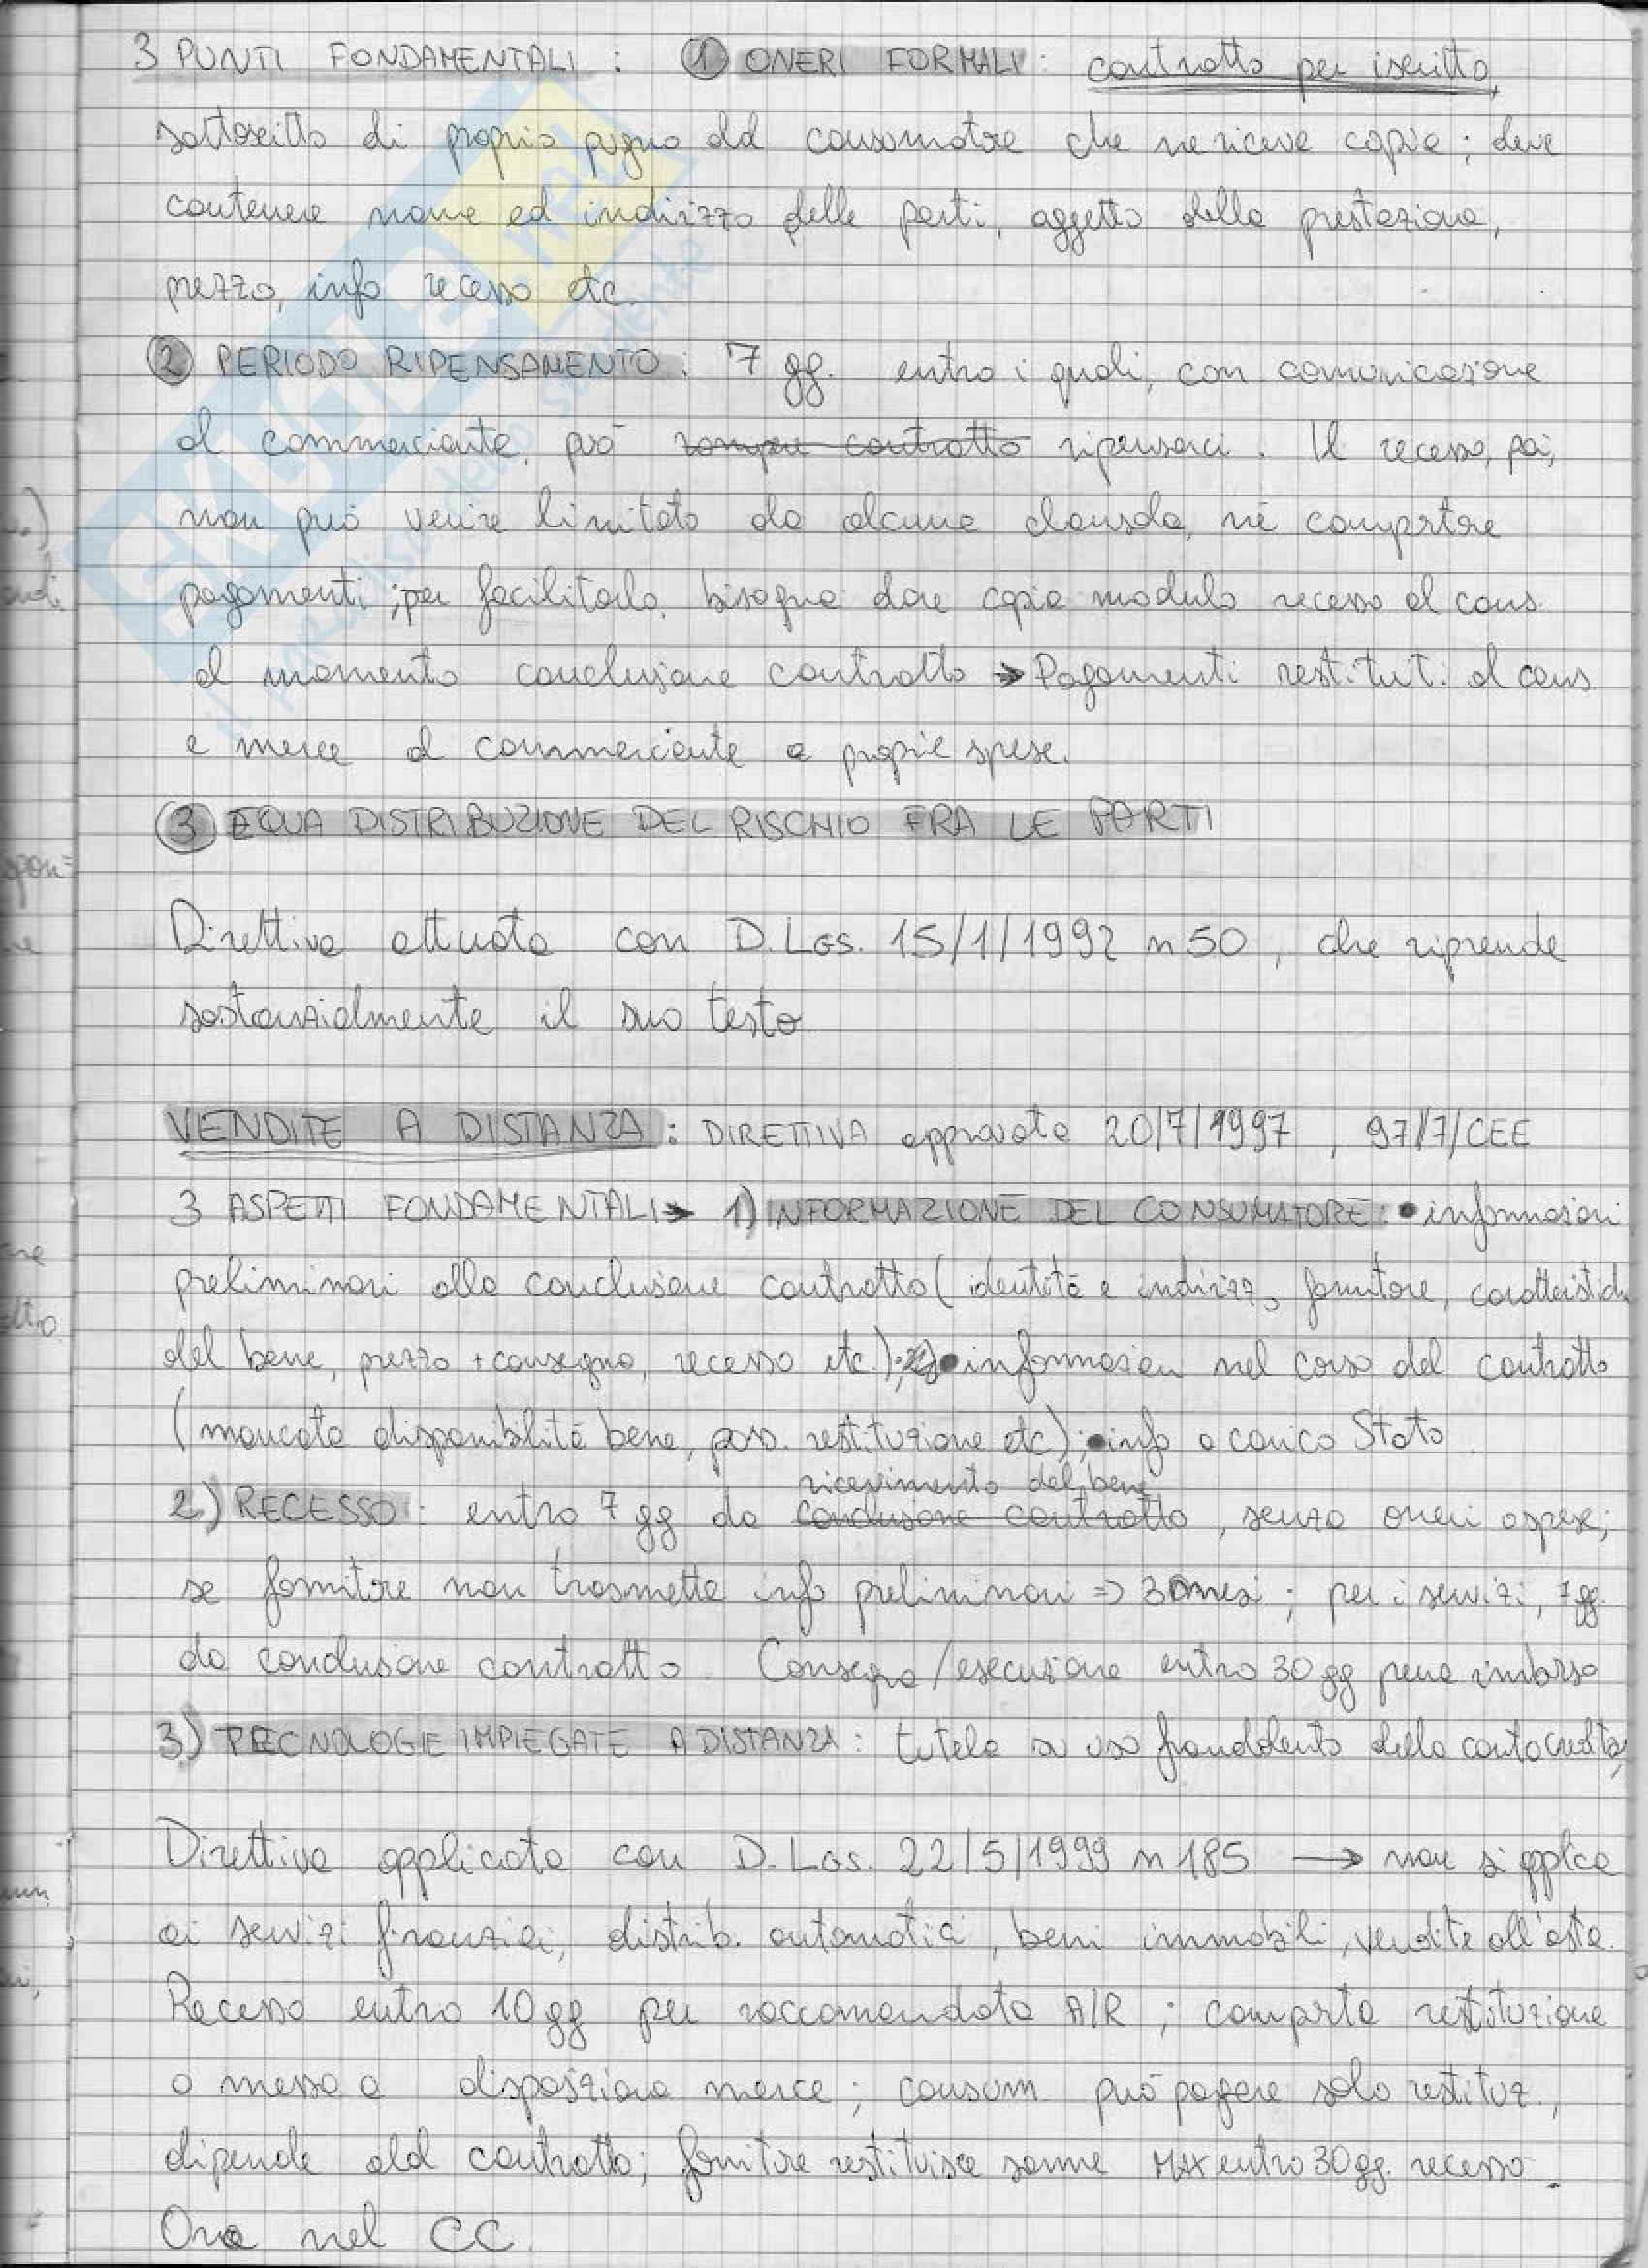 3 PUNTI FONDAMENTALI : ① ONERI FORMALI : contratto per iscritto,
sottoscritto di proprio pugno dal consumatore che ne riceve copia ; deve
contenere nome ed indirizzo delle parti, oggetto della prestazione,
prezzo, info recesso etc.
② PERIODO RIPENSAMENTO : 7 gg. entro i quali, con comunicazione
al commerciante, può rompere contratto ripensarci . Il recesso, poi,
non può venire limitato da alcuna clausola, né comportare
pagamenti ; per facilitarlo, bisogna dare copia modulo recesso al cons.
al momento conclusione contratto → Pagamenti restituiti al cons
e merce al commerciante a proprie spese.
③ EQUA DISTRIBUZIONE DEL RISCHIO FRA LE PARTI
Direttiva attuata con D. LGS. 15/1/1992 n 50 , che riprende
sostanzialmente il suo testo
VENDITE A DISTANZA : DIRETTIVA approvata 20/7/1997 , 97/7/CEE
3 ASPETTI FONDAMENTALI → 1) INFORMAZIONE DEL CONSUMATORE : • informazioni
preliminari alla conclusione contratto ( identità e indirizzo fornitore, caratteristiche
del bene, prezzo + consegna, recesso etc.) ; • informazioni nel corso del contratto
( mancata disponibilità bene, poss. restituzione etc) ; • info a carico Stato
ricevimento del bene
2) RECESSO : entro 7 gg da conclusione contratto , senza oneri o spese ;
se fornitore non trasmette info preliminari ⇒ 3 mesi ; per i servizi, 7 gg.
da conclusione contratto . Consegna / esecuzione entro 30 gg pena rimborso
3) TECNOLOGIE IMPIEGATE A DISTANZA : tutela su uso fraudolento della carta credito,
Direttiva applicata con D. LGS. 22/5/1999 n 185 → non si applica
ai servizi finanziari, distrib. automatici , beni immobili , vendite all'asta.
Recesso entro 10 gg per raccomandata A/R ; comporta restituzione
o messa a disposizione merce ; consum. può pagare solo restituz.,
dipende dal contratto ; fornitore restituisce somme MAX entro 30 gg. recesso.
Ora nel CC.
SKUOLA.net
il paradiso dello studente